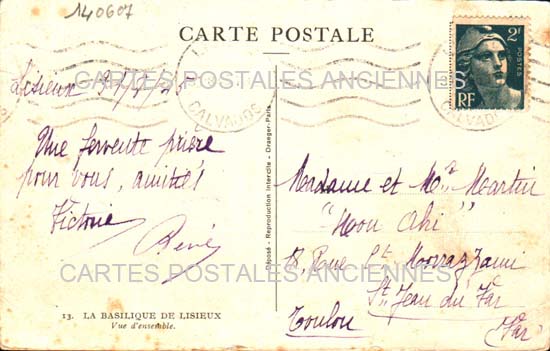 140607
CARTE POSTALE
2F
POSTES
RF
CALVADOS
CALVADOS
CARTES POSTALES ANCIENNES
Lisieux
Une fervente prière
pour vous, amitiés
Victoria
René
Déposé - Reproduction Interdite - Draeger-Paris
Madame et Mr Martin
"Mon
8, Rue St
St Jean du Var
Toulon (Var)
CARTES POSTALES ANCIENNES
13. LA BASILIQUE DE LISIEUX
Vue d'ensemble.